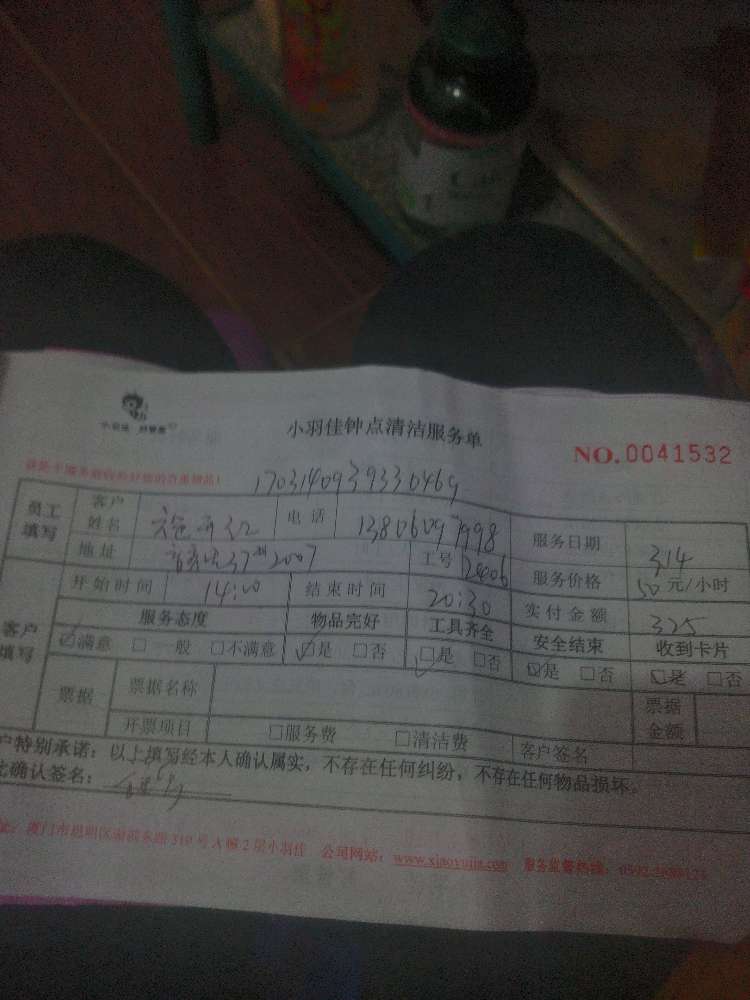 小羽佳
小羽佳钟点清洁服务单
NO.0041532
1703140939330469
员工填写 客户姓名 电话 13806091998 服务日期 314
地址 37 2007 工号 服务价格 50元/小时
开始时间 14:00 结束时间 20:30 实付金额 325
客户填写 服务态度 物品完好 工具齐全 安全结束 收到卡片
☑满意 □一般 □不满意 ☑是 □否 ☑是 □否 ☑是 □否 ☑是 □否
票据 票据名称 票据金额
开票项目 □服务费 □清洁费 客户签名
户特别承诺:以上填写经本人确认属实,不存在任何纠纷,不存在任何物品损坏。
此确认签名:
址:厦门市思明区 东路319号 2层小羽佳 公司网站:www.xiaoyujia.com 服务监督热线: